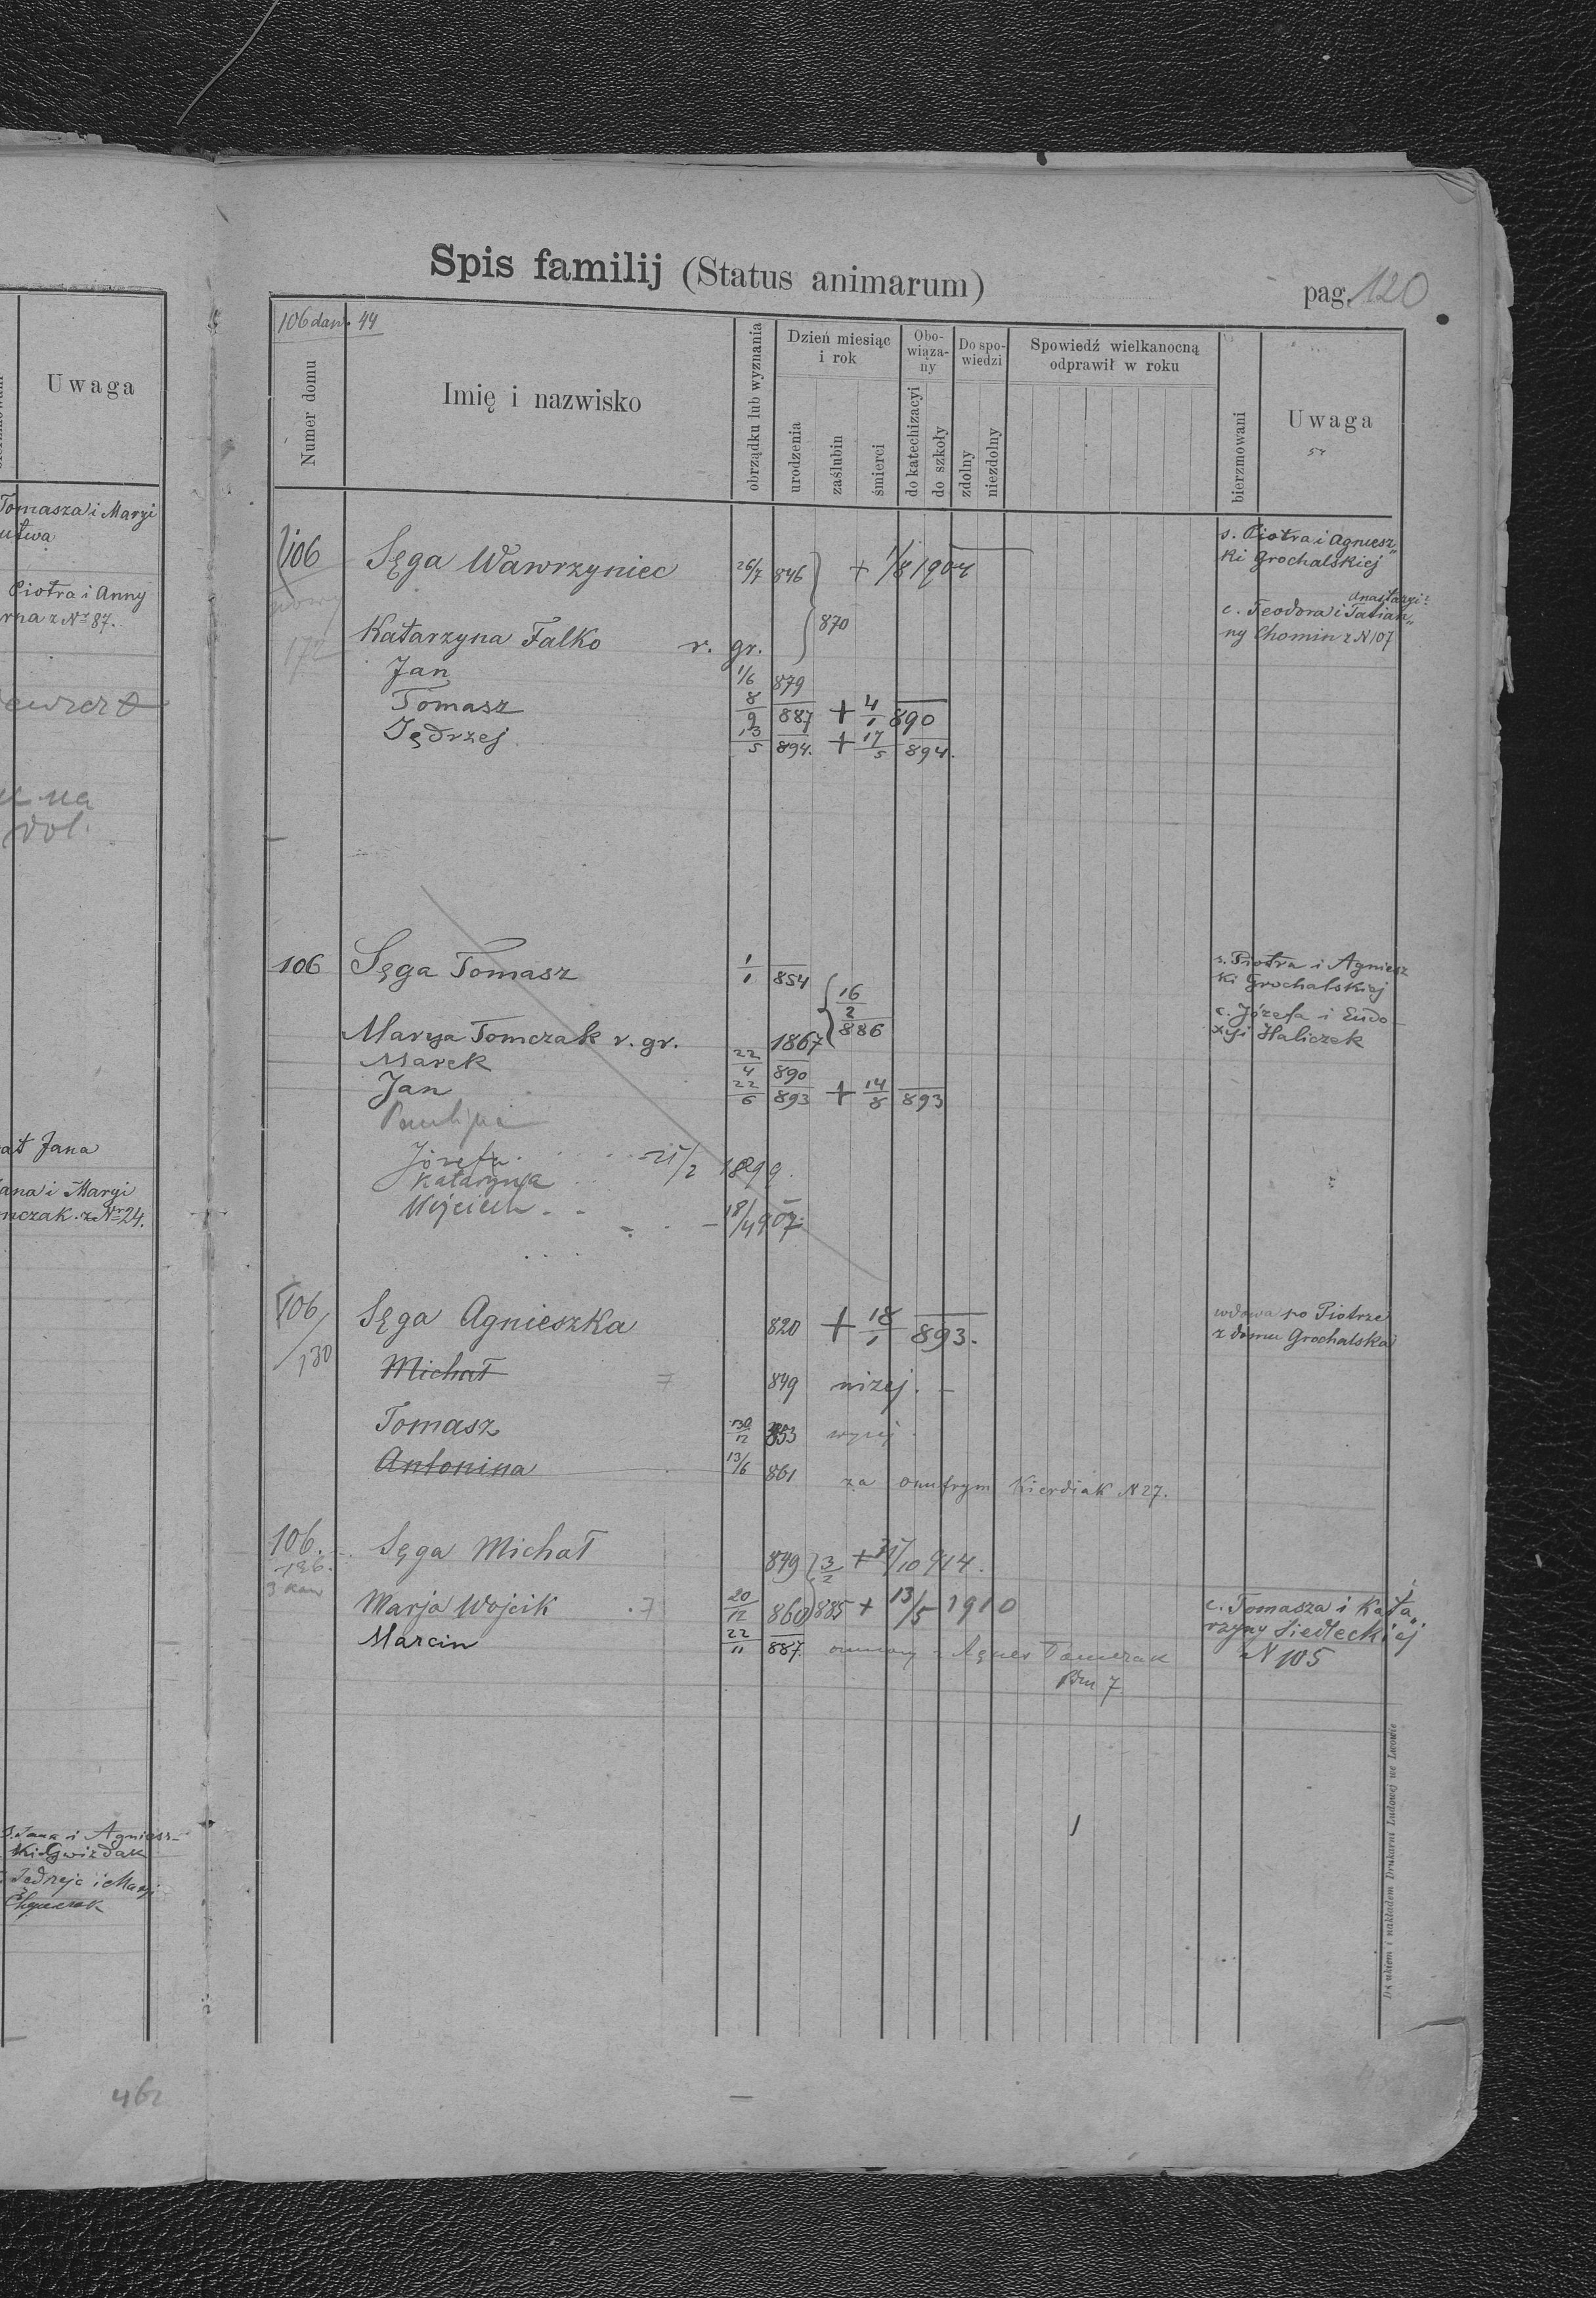 Uwaga
Tomasza i Maryi
Piotra i Anny
z Nr 87.
Jana
Jana i Maryi
z Nr 24.
s. Jana i Agniesz-
ki Gwizdak
Jędrzeja i Maryi
462
Spis familij (Status animarum)
pag. 120
106 daw. 44
Numer domu
Imię i nazwisko
obrządku lub wyznania
Dzień miesiąc i rok
urodzenia
zaślubin
śmierci
Obo-wiąza-ny
do katechizacyi
do szkoły
Do spo-wiedzi
zdolny
niezdolny
Spowiedź wielkanocną odprawił w roku
bierzmowani
Uwaga
106 Sęga Wawrzyniec 26/7 846 + 1/8 1904 s. Piotra i Agniesz„
ki Grochalskiej
nowy
172 Katarzyna Falko r. gr. 870 c. Teodora i Tatian„
Anastazyi?
ny Chomin z N 107
Jan 1/6 879
Tomasz 8/9 887 + 4/1 890
Jędrzej 13/5 894. + 17/5 894.
106 Sęga Tomasz 1/1 854 s. Piotra i Agniesz
ki Grochalskiej
16/2 886
Marya Tomczak r. gr. 1867 c. Józefa i Eudo
xyi Haliczek
Marek 22/4 890
Jan 22/6 893 + 14/8 893
Paulina
Józefa
Katarzyna 1899.
Wojciech 18/4 907.
106 Sęga Agnieszka 820 + 18/1 893. wdowa po Piotrze
z domu Grochalska
130
Michał 849 niżej. –
Tomasz 30/12 853 wyżej
Antonina 13/6 861 za Onufrym Kierdiak N 27.
106. Sęga Michał 849 3/2 885 + 10 914.
Marja Wojcik 20/12 860 + 13/5 1910 c. Tomasza i Kata„
rzyny Siedleckiej
N 105
Marcin 22/11 887.
7
Drukiem i nakładem Drukarni Ludowej we Lwowie